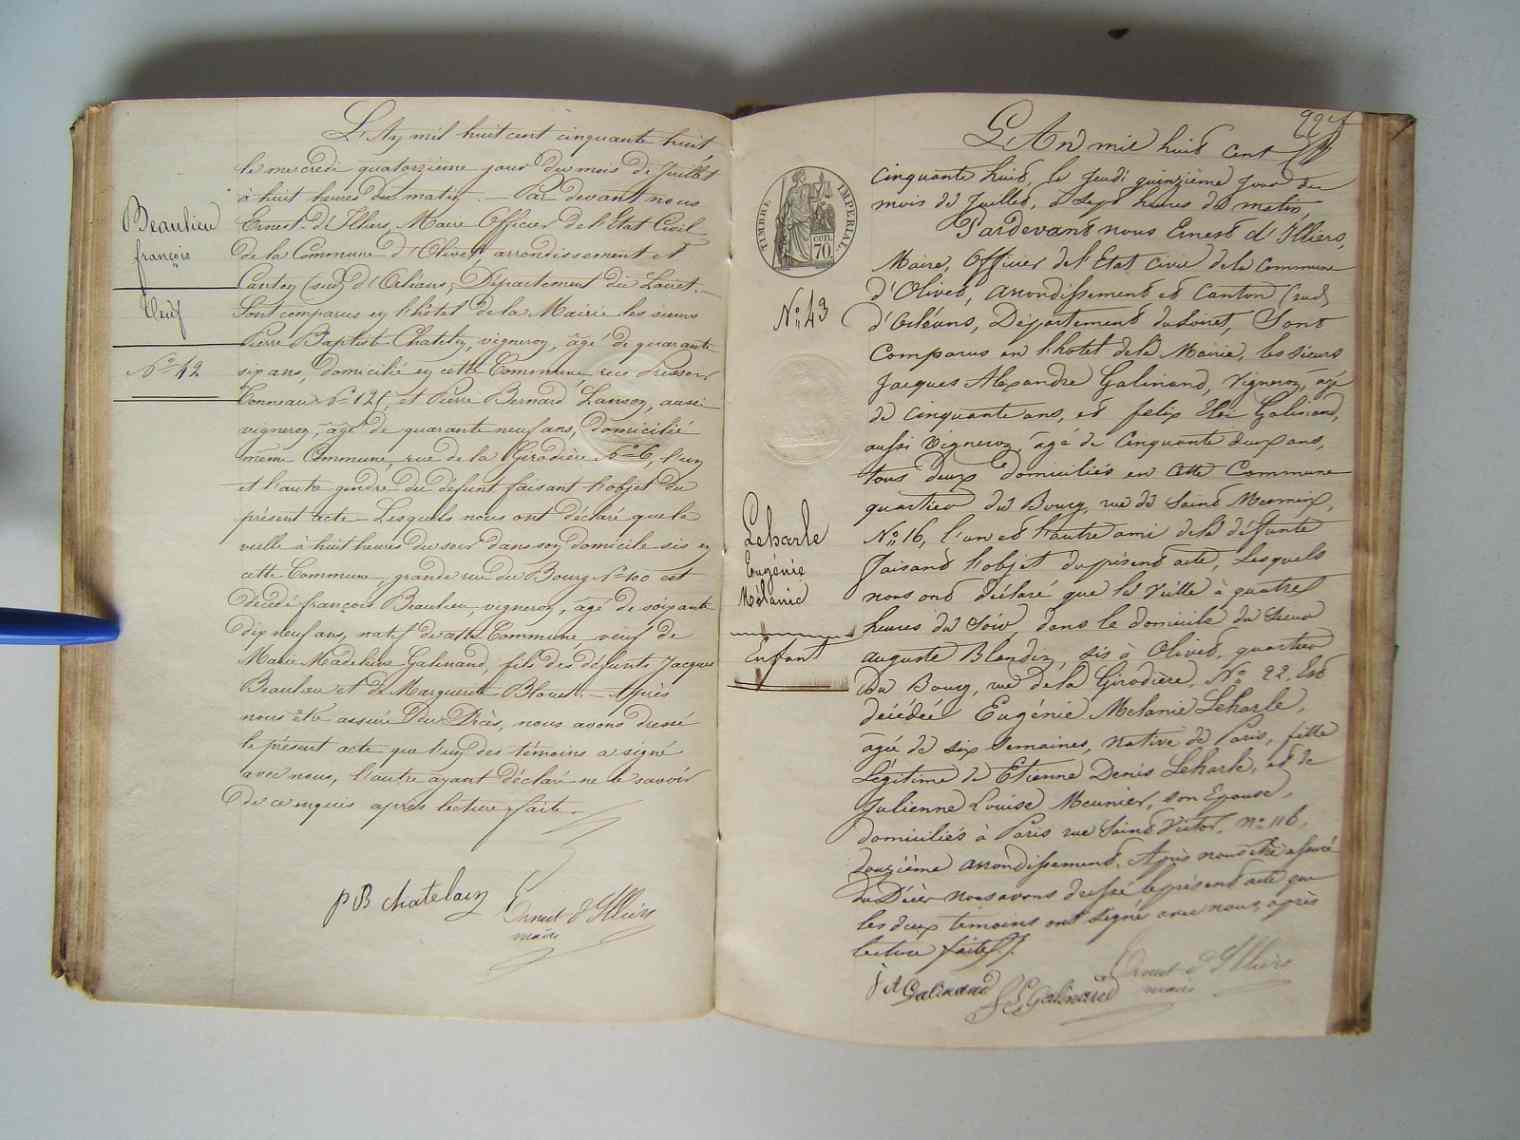 L'An mil huit cent cinquante huit
le mercredi quatorzième jour du mois de Juillet
à huit heures du matin. — Par devant nous
Ernest d'Illiers, Maire Officier de l'Etat Civil
de la Commune d'Olivet, arrondissement et
Canton (sud) d'Orléans, Département du Loiret. —
Sont comparus en l'hôtel de la Mairie les sieurs
Pierre Baptiste Chatelain, vigneron, âgé de quarante
six ans, domicilié en cette Commune rue
Tonneau No 125, et Pierre Bernard Lanson, aussi
vigneron, âgé de quarante neuf ans, domicilié
même Commune, rue de la Girodière No 6, l'un
et l'autre gendre du défunt faisant l'objet du
présent acte — Lesquels nous ont déclaré que la
veille à huit heures du soir dans son domicile sis en
cette Commune, grande rue du Bourg No 100 est
décédé françois Beaulieu, vigneron, âgé de soixante
dix neuf ans, natif de cette Commune, veuf de
Marie Madeleine Galinand, fils des défunts Jacques
Beaulieu et de Marguerite — Après
nous être assuré du Décès, nous avons dressé
le présent acte que l'un des témoins a signé
avec nous, l'autre ayant déclaré ne le savoir
de ce enquis après lecture faite.
Beaulieu
françois
Veuf
No 42
p B chatelain
Ernest d'Illiers
maire
227
L'An mil huit cent
cinquante huit, le Jeudi quinzième jour du
mois de Juillet, à Sept heures du matin,
Pardevant nous Ernest d'Illiers,
Maire, Officier de l'Etat Civil de la Commune
d'Olivet, arrondissement et Canton (sud)
d'Orléans, Département du Loiret, Sont
Comparus en l'hôtel de la Mairie, les sieurs
Jacques Alexandre Galinand, Vigneron, âgé
de cinquante ans, et felix Galinand,
aussi Vigneron, âgé de Cinquante deux ans,
tous deux domiciliés en cette Commune
quartier du Bourg, rue de Saint Mesmin,
No 16, l'un et l'autre ami de la défunte
faisant l'objet du présent acte, Lesquels
nous ont déclaré que la Veille à quatre
heures du Soir dans le domicile du Sieur
auguste Blandin, sis à Olivet, quartier
du Bourg, rue de la Girodière, No 22, Est
décédée Eugénie Mélanie Leharle,
âgée de six Semaines, native de Paris, fille
Légitime de Etienne Denis Leharle, et de
Julienne Louise Meunier, son Epouse,
domiciliés à Paris rue Saint Victor, No 116,
douzième arrondissement. Après nous être assuré
du Décès nous avons dressé le présent acte que
les deux témoins ont signé avec nous, après
lecture faite.
TIMBRE IMPERIAL
70
No 43
Leharle
Eugénie
Mélanie
Enfant
Galinand
Galinand
Ernest d'Illiers
maire